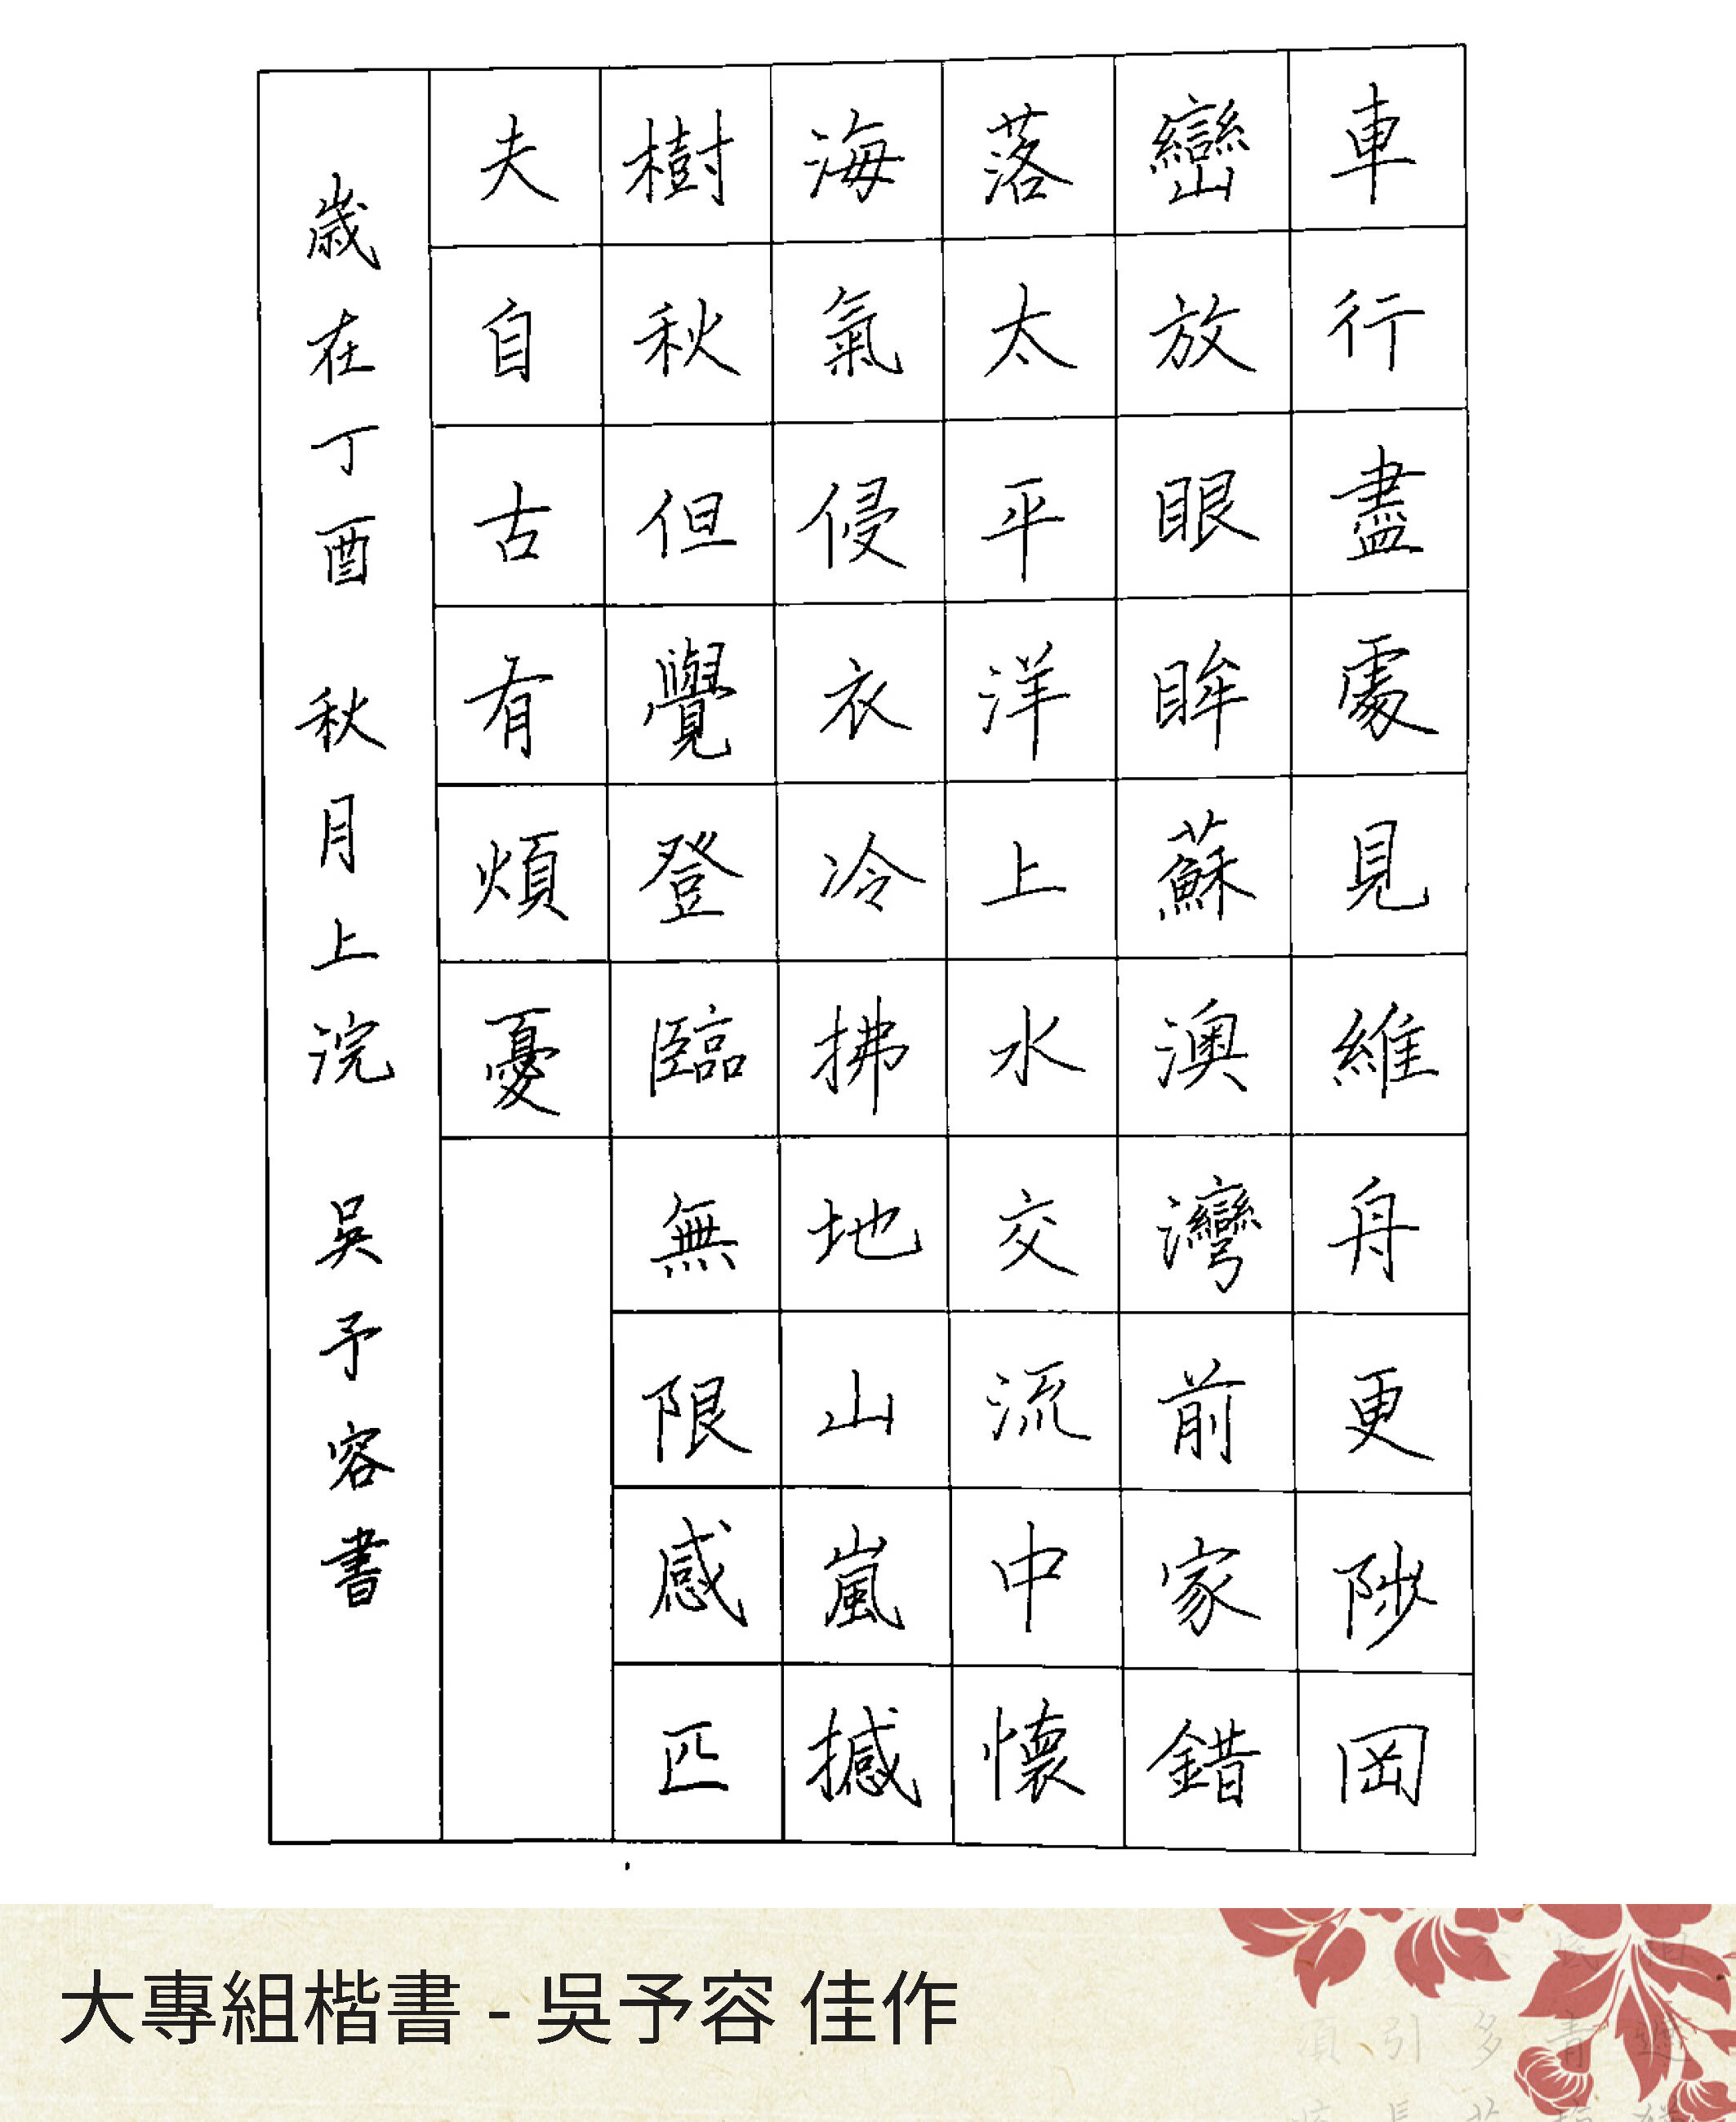 車行盡處見維舟更陟岡
巒放眼眸蘇澳灣前家錯
落太平洋上水交流中懷
海氣侵衣冷拂地山嵐撼
樹秋但覺登臨無限感匹
夫自古有煩憂
歲在丁酉 秋月上浣 吳予容書
大專組楷書 - 吳予容 佳作